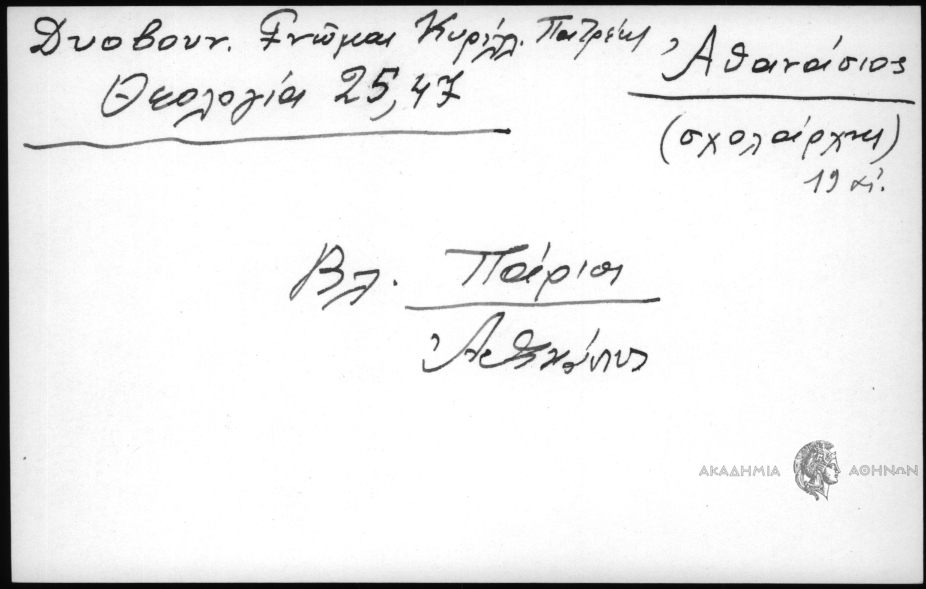 Δυοβουν. Γνῶμαι Κυρίλλ. Πατρέως
Θεολογία 25,47
Ἀθανάσιος
(σχολάρχης)
19 αἰ.
Βλ. Πάριος
Ἀθανάσιος
ΑΚΑΔΗΜΙΑ ΑΘΗΝΩΝ